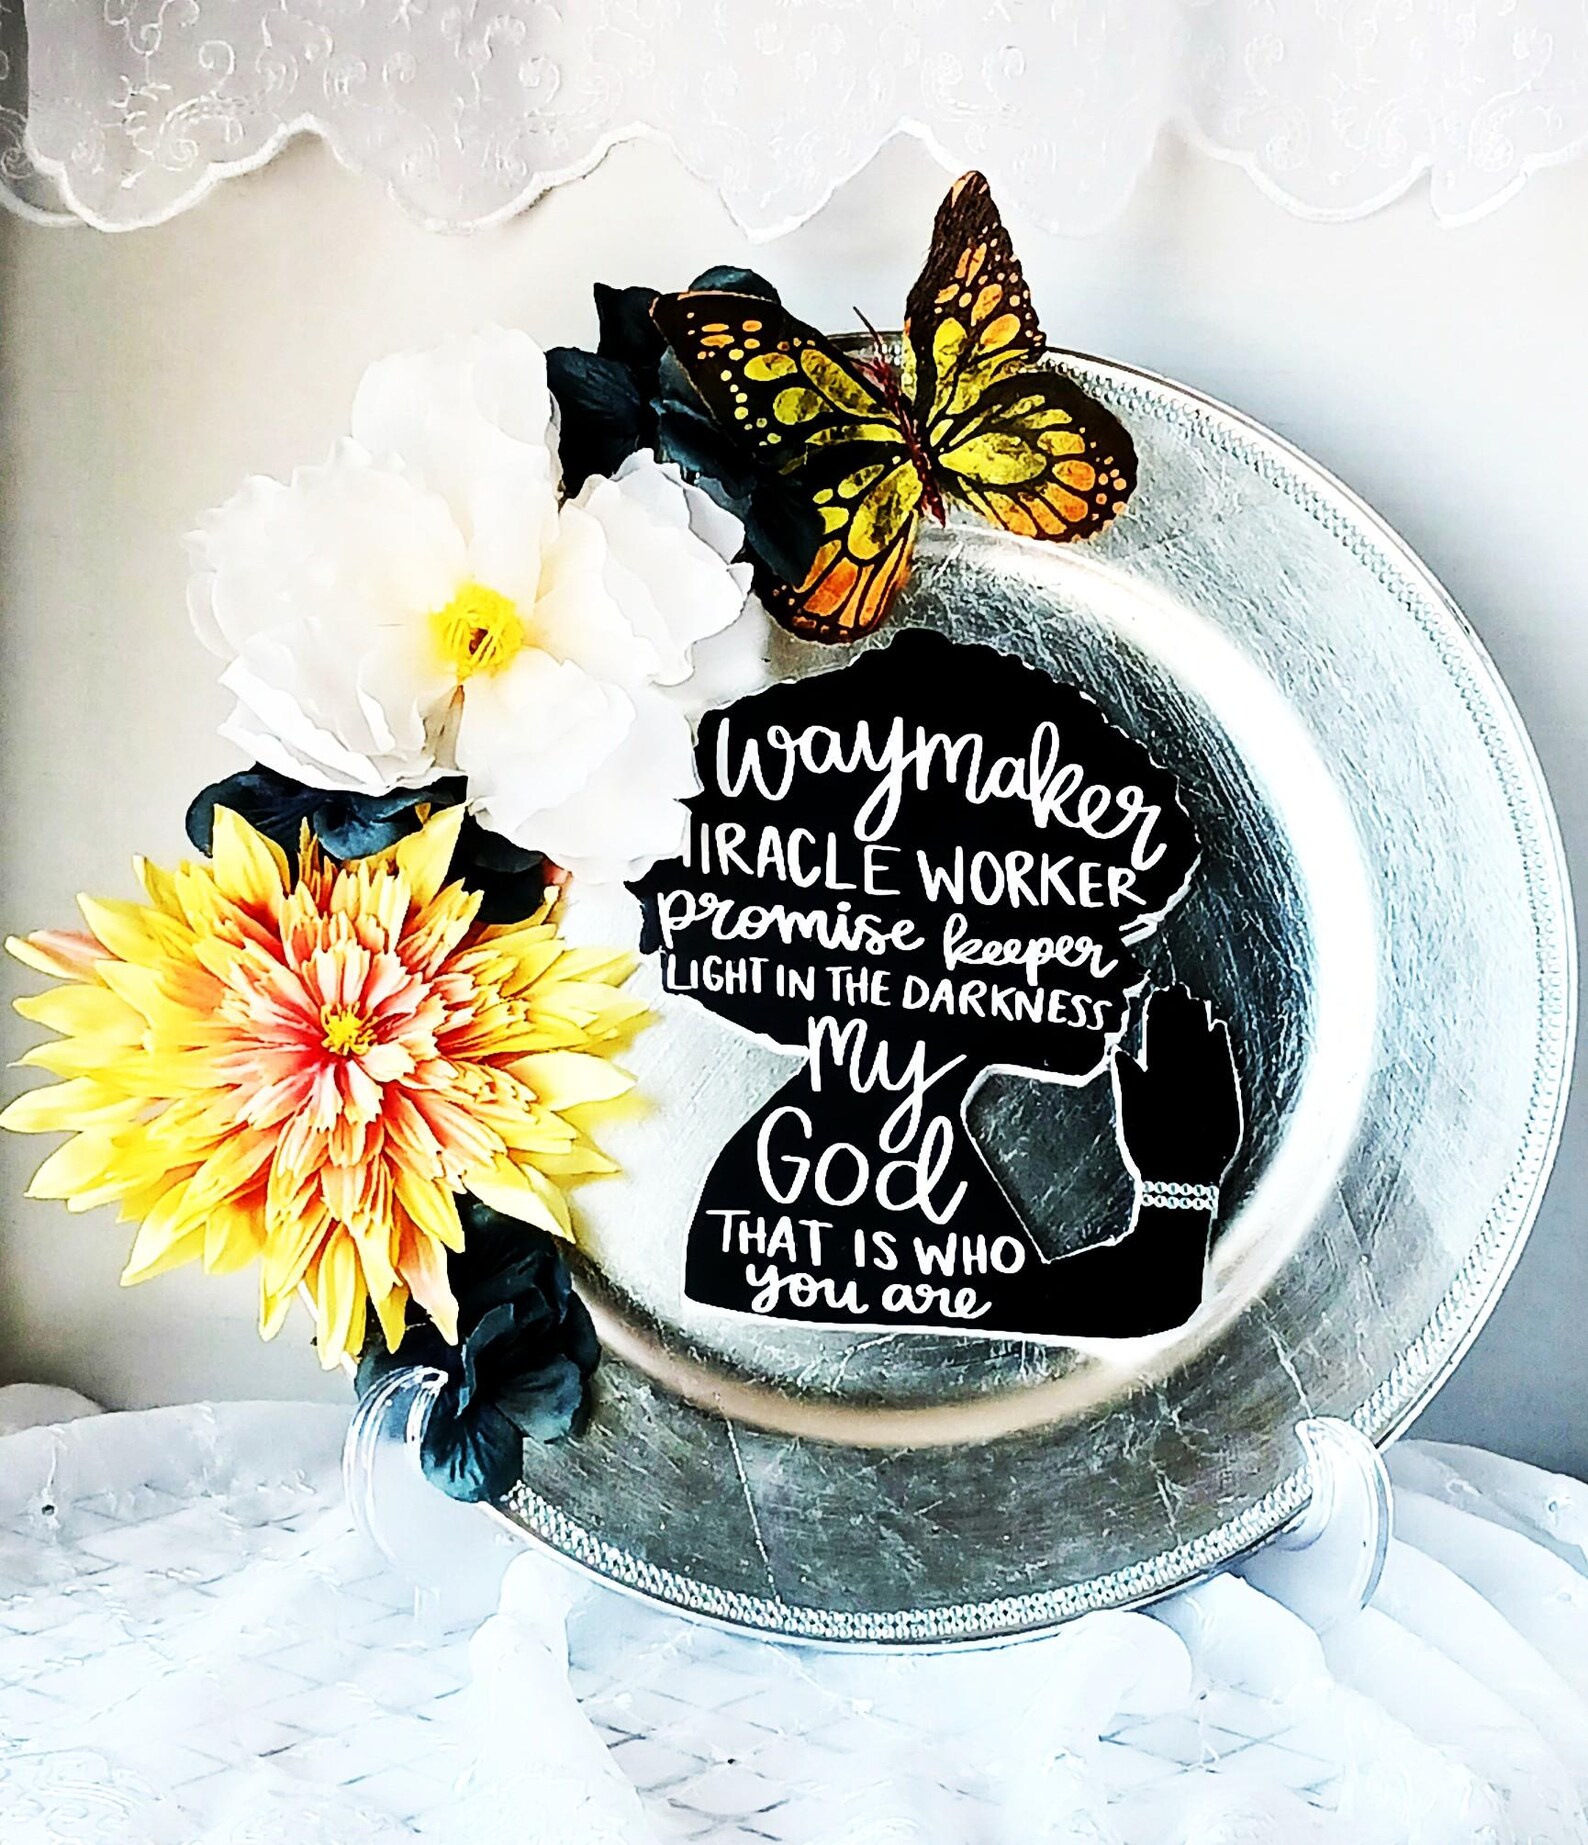 waymaker
MIRACLE WORKER
promise keeper
LIGHT IN THE DARKNESS
My
God
THAT IS WHO
you are